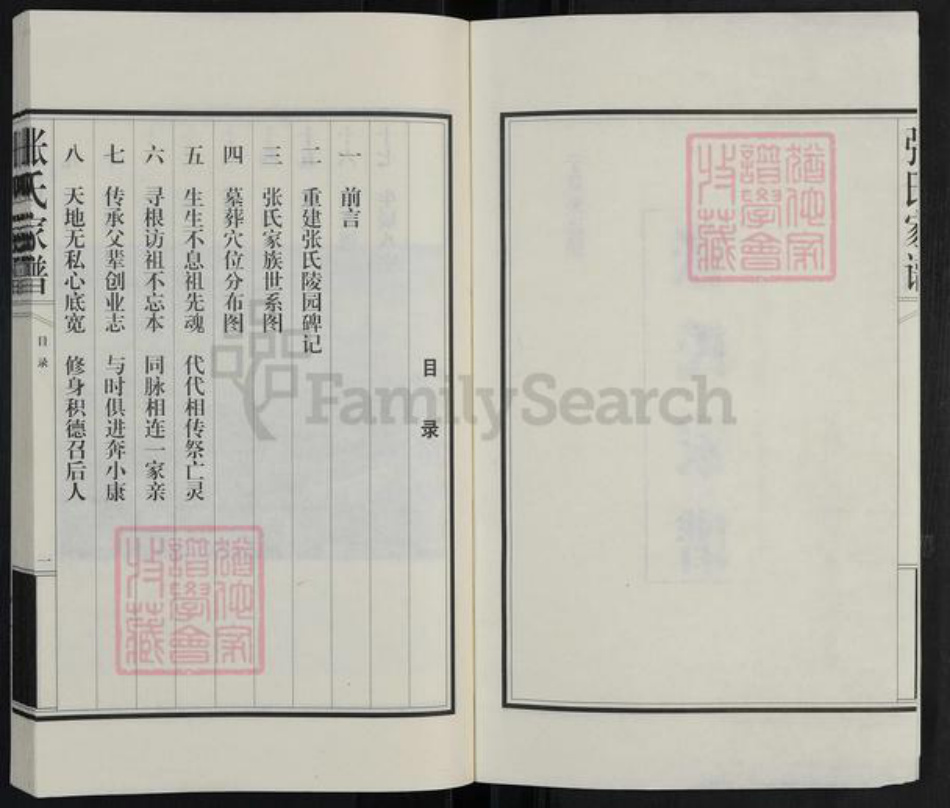 张氏家谱
目录
一 前言
二 重建张氏陵园碑记
三 张氏家族世系图
四 墓葬穴位分布图
五 生生不息祖先魂 代代相传祭亡灵
六 寻根访祖不忘本 同脉相连一家亲
七 传承父辈创业志 与时俱进奔小康
八 天地无私心底宽 修身积德召后人
张氏家谱
目录
一
FamilySearch